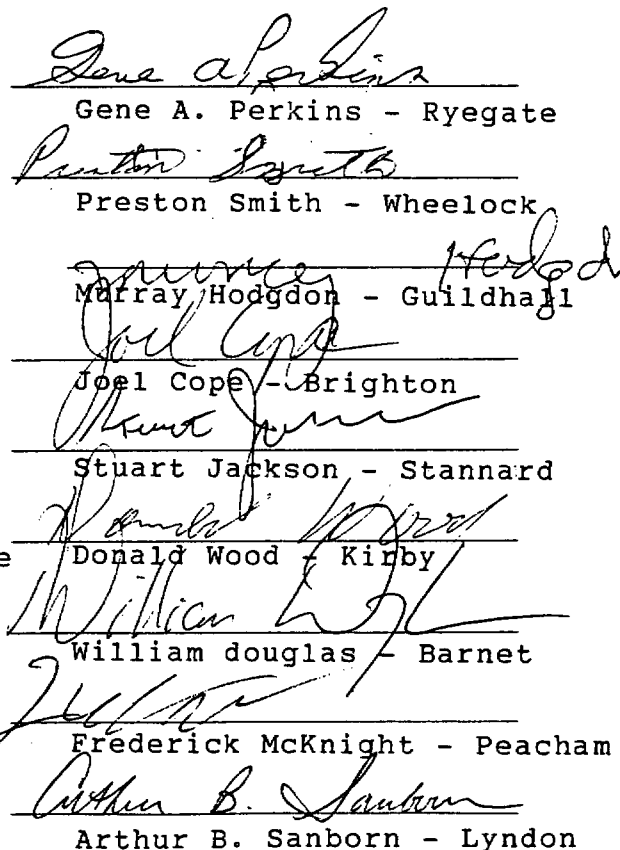 Gene A Perkins
Gene A. Perkins - Ryegate
Preston Smith
Preston Smith - Wheelock
Murray Hodgd
Murray Hodgdon - Guildhall
Joel Cope
Joel Cope - Brighton
Stuart Jackson - Stannard
Donald Wood
e Donald Wood - Kirby
William
William douglas - Barnet
Frederick McKnight - Peacham
Arthur B. Sanborn
Arthur B. Sanborn - Lyndon